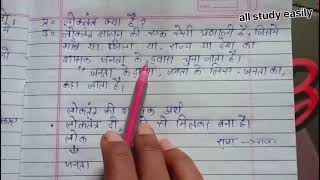 all study easily
प्र० लोकतंत्र क्या है?
उ० लोकतंत्र शासन की एक ऐसी प्रणाली है, जिसमें
गांव या जिला या राज्य या देश का
शासक जनता के द्वारा चुना जाता है।
"जनता जनता के लिए जनता का
कहा जाता है।
लोकतंत्र की अर्थ
लोकतंत्र दो से मिलकर बना है।
लोक
जनता